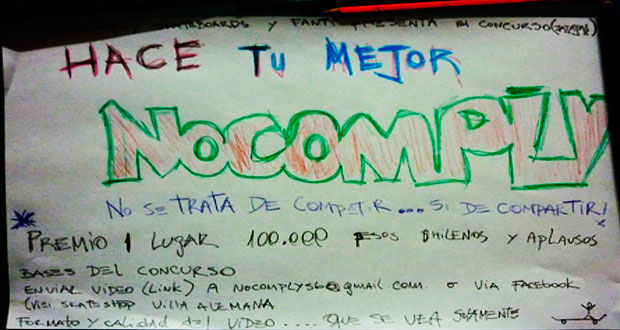 SKATEBOARDS Y FANTI PRESENTA EN CONCURSO
HACE TU MEJOR
NOCOMPLY
NO SE TRATA DE COMPETIR... SI DE COMPARTIR!
PREMIO 1 LUGAR 100.000 PESOS CHILENOS Y APLAUSOS
BASES DEL CONCURSO
ENVIAR VIDEO (LINK) A NOCOMPLY56@GMAIL COM. O VIA FACEBOOK
SKATESHOP VILLA ALEMANA
FORMATO Y CALIDAD DEL VIDEO .... QUE SE VEA SOLAMENTE